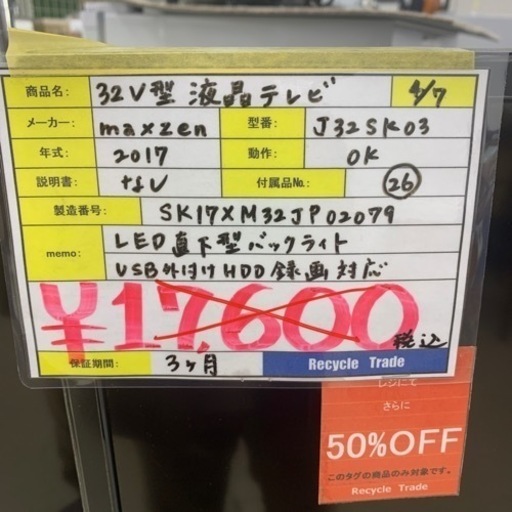 商品名: 32V型 液晶テレビ 4/7
メーカー: maxzen 型番: J32SK03
年式: 2017 動作: OK
説明書: なし 付属品No.: 26
製造番号: SK17XM32JP02079
memo: LED直下型バックライト
USB外付けHDD録画対応
¥17,600 税込
保証期間: 3ヶ月 Recycle Trade
レジにて
さらに
50%OFF
このタグの商品のみ対象です。
Recycle Trade